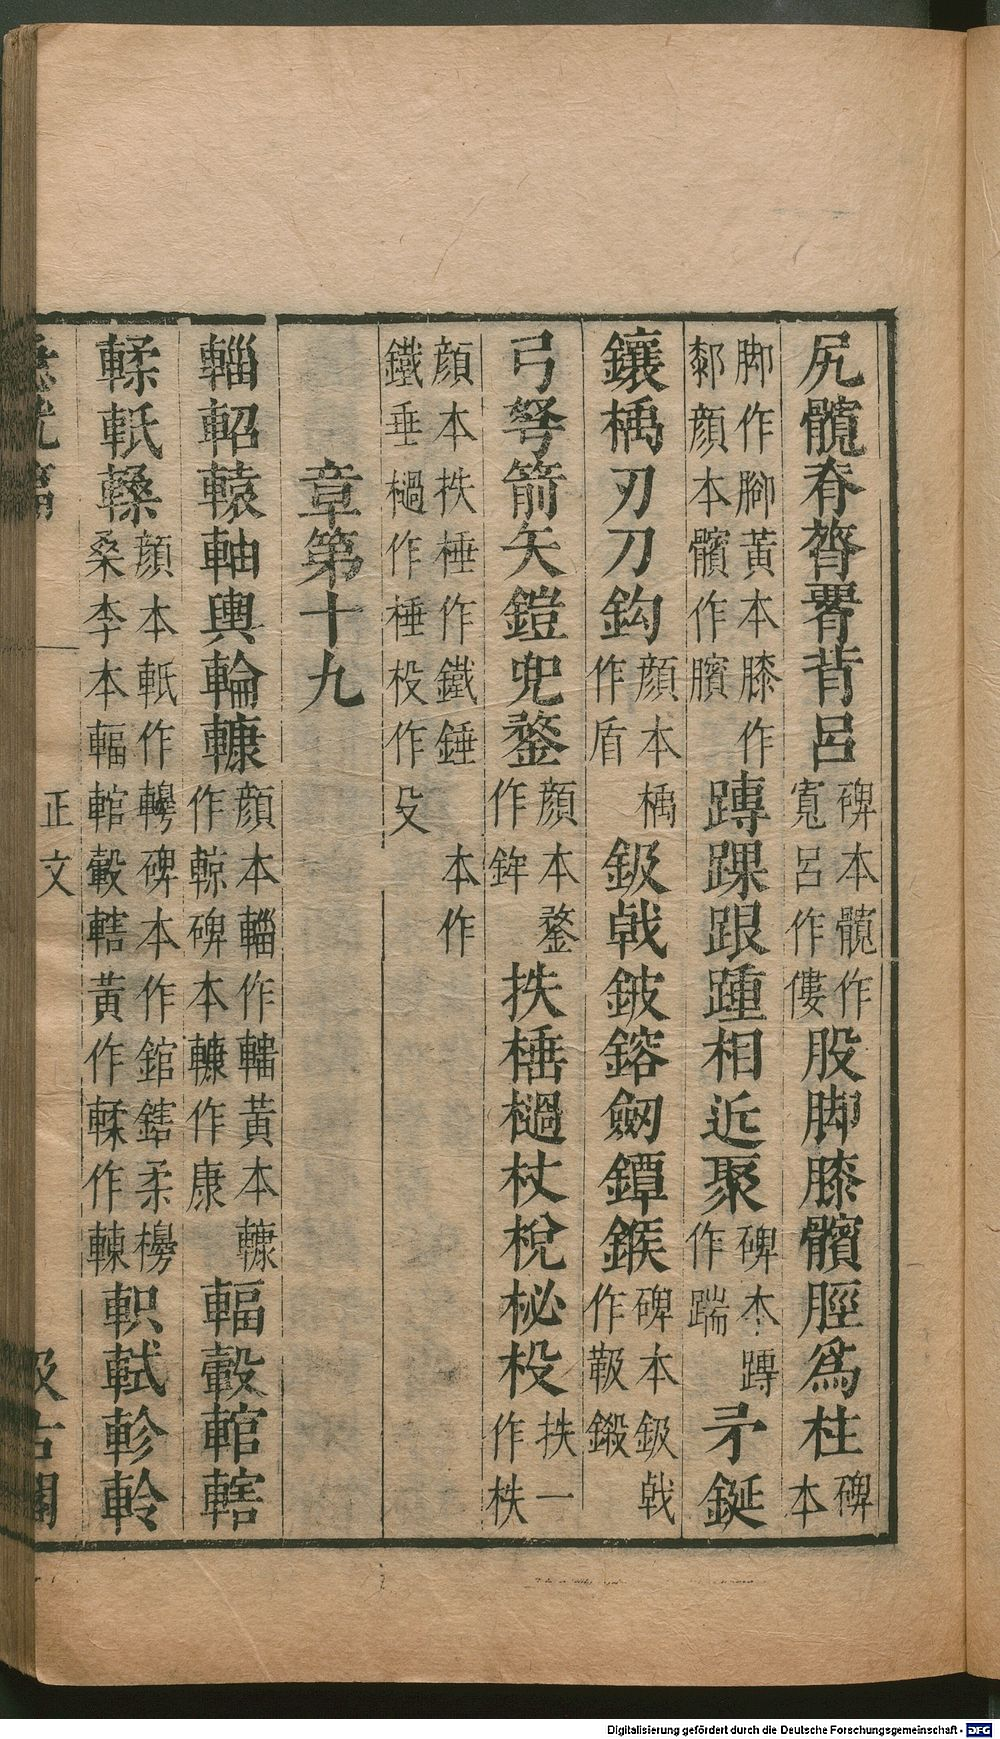 尻髖脊膂𦝫背呂碑本髖作寬呂作僂股脚膝髕脛爲柱碑本
脚作腳黃本膝作厀顏本髕作臏踹踝跟踵相近聚碑本踹作踹矛鋋
鑲楯刃刀鈎顏本楯作盾鈒戟鈹鎔劒鐔鍭碑本鈒戟作靸鍛
弓弩箭矢鎧兜鍪顏本鍪作鉾扶棰檛杖梲柲杸扶一作柣
顏本扶棰作鐵錘本作鐵垂檛作棰杸作殳
章第十九
輜軺轅軸輿輪𨎍顏本輜作轠黃本𨎍作輬碑本𨎍作康輻轂輨轄
輮軧𨍰顏本軧作轓碑本作錧鎋柔櫋桑李本輻輨轂轄黃作輮作𨌥軹軾軫軨
急就篇 正文 汲古閣
Digitalisierung gefördert durch die Deutsche Forschungsgemeinschaft - DFG